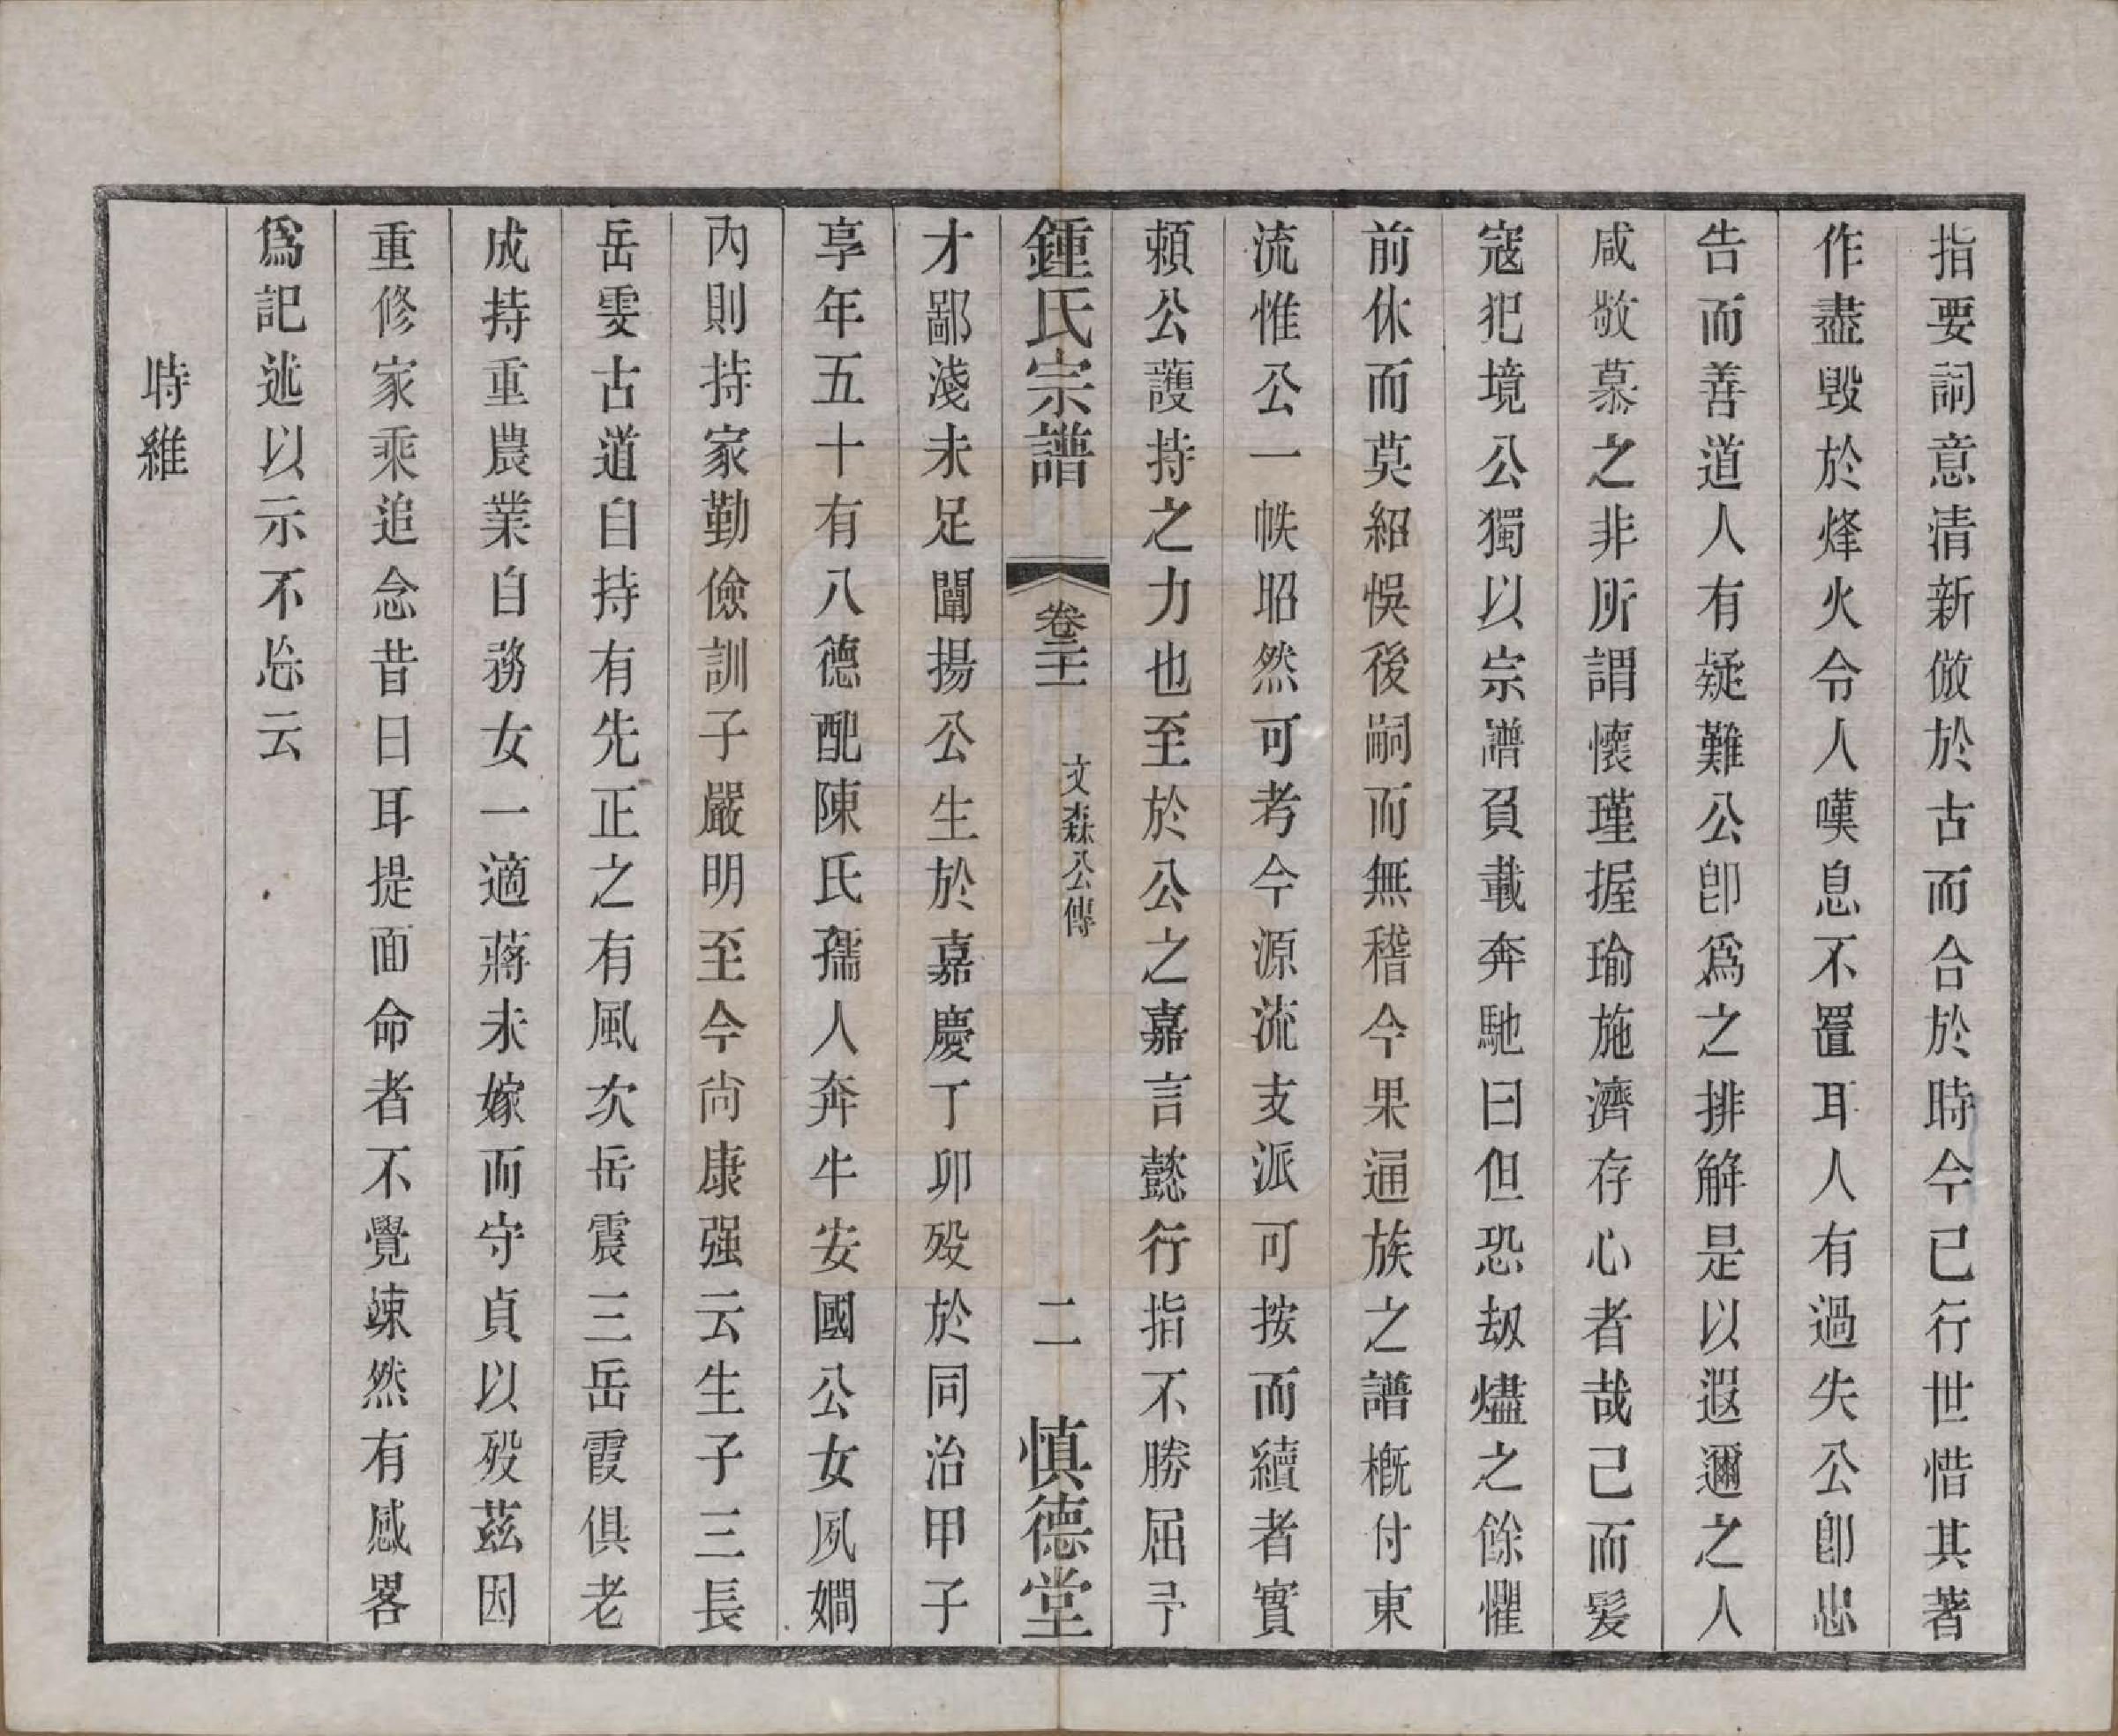 指要詞意清新倣於古而合於時今已行世惜其著
作盡毀於烽火令人嘆息不置耳人有過失公卽忠
告而善道人有疑難公卽爲之排解是以遐邇之人
咸敬慕之非所謂懷瑾握瑜施濟存心者哉己而髮
寇犯境公獨以宗譜負載奔馳曰但恐刼燼之餘懼
前休而莫紹悞後嗣而無稽今果通族之譜槪付東
流惟公一帙昭然可考今源流支派可按而續者實
賴公護持之力也至於公之嘉言懿行指不勝屈予
鍾氏宗譜
卷二十一
文森公傳
二
慎德堂
才鄙淺未足闡揚公生於嘉慶丁卯歿於同治甲子
享年五十有八德配陳氏孺人奔牛安國公女夙嫻
內則持家勤儉訓子嚴明至今尙康强云生子三長
岳雯古道自持有先正之有風次岳震三岳霞俱老
成持重農業自務女一適蔣未嫁而守貞以歿茲因
重修家乘追念昔日耳提面命者不覺竦然有感畧
爲記述以示不忘云
時維